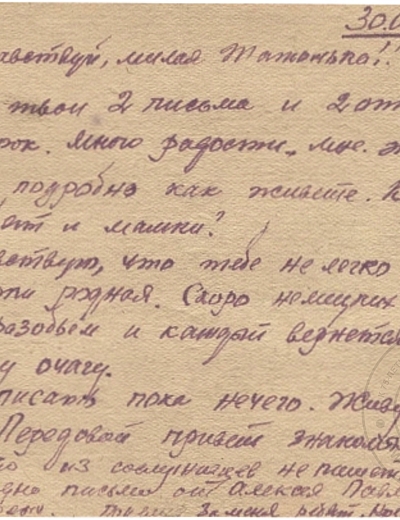 30.0
авствуй, милая Татонька!!
твои 2 письма и 2 от
рок. Много радости мне. э
подробно как живете. К
ет и мамки?
вствую, что тебе не легко
пи родная. Скоро немецких
разобьем и каждый вернется
у очагу.
писать пока нечего. Живу
Передовой привет знаком
то из сослуживцев не пишет
дно письмо от Алексея Павл
За меня